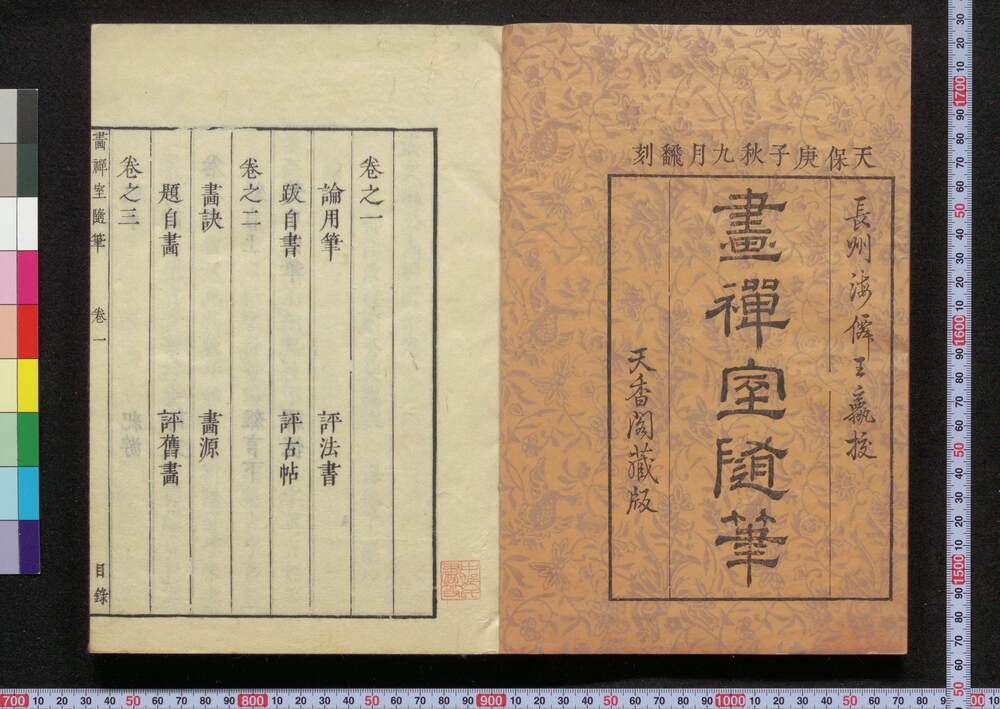 天保庚子秋九月飜刻
長州海僊王羸挍
畫禪室隨筆
天香閣藏版
卷之一
論用筆 評法書
跋自書 評古帖
卷之二
畫訣 畫源
題自畫 評舊畫
卷之三
畫禪室隨筆 卷一 目錄